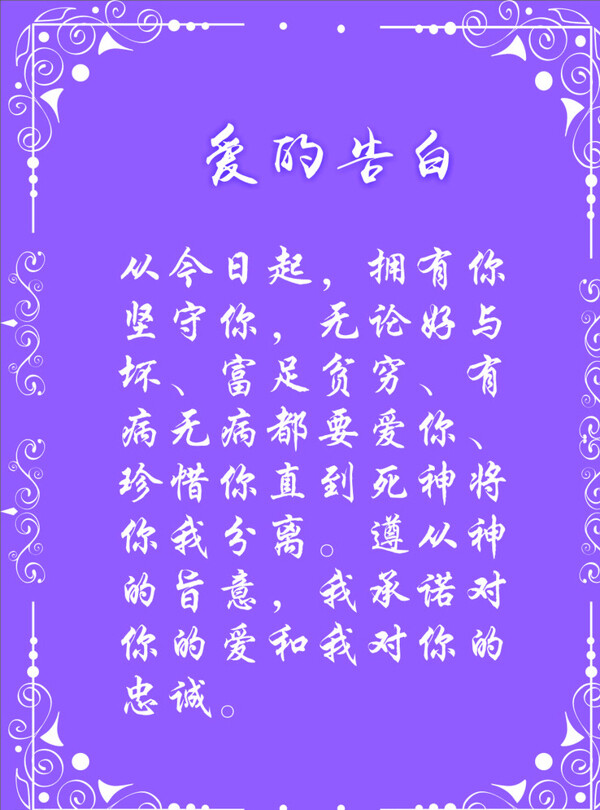 爱的告白
从今日起，拥有你
坚守你，无论好与
坏、富足贫穷、有
病无病都要爱你、
珍惜你直到死神将
你我分离。遵从神
的旨意，我承诺对
你的爱和我对你的
忠诚。